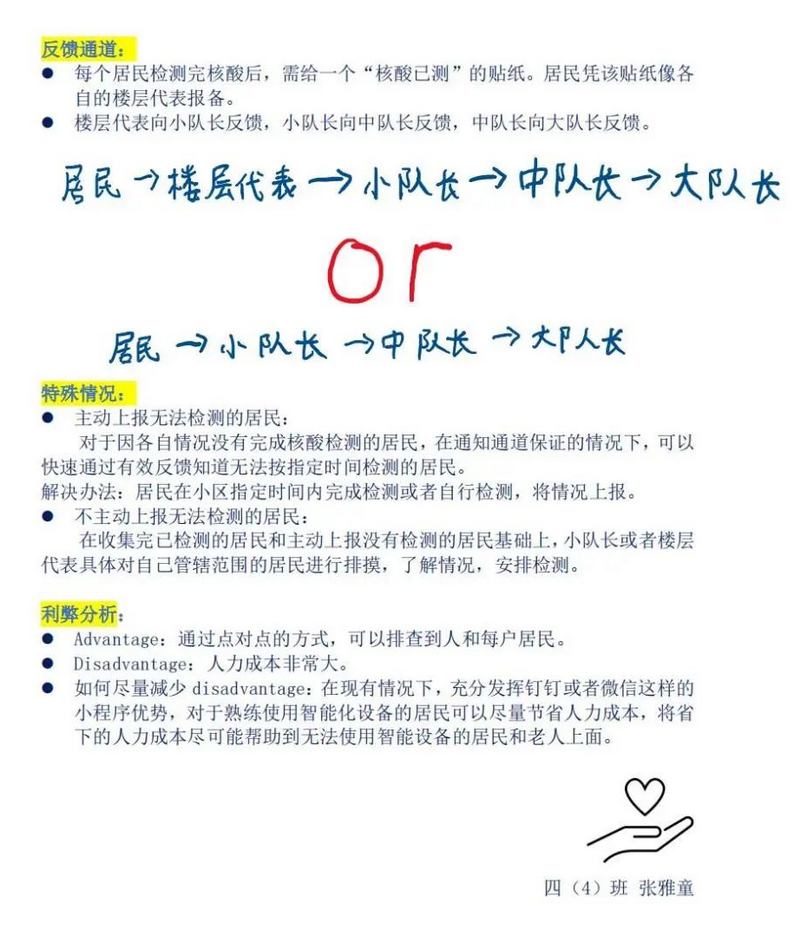 反馈通道：
● 每个居民检测完核酸后，需给一个“核酸已测”的贴纸。居民凭该贴纸像各
自的楼层代表报备。
● 楼层代表向小队长反馈，小队长向中队长反馈，中队长向大队长反馈。
居民→楼层代表→小队长→中队长→大队长
or
居民→小队长→中队长→大队长
特殊情况：
● 主动上报无法检测的居民：
对于因各自情况没有完成核酸检测的居民，在通知通道保证的情况下，可以
快速通过有效反馈知道无法按指定时间检测的居民。
解决办法：居民在小区指定时间内完成检测或者自行检测，将情况上报。
● 不主动上报无法检测的居民：
在收集完已检测的居民和主动上报没有检测的居民基础上，小队长或者楼层
代表具体对自己管辖范围的居民进行排摸，了解情况，安排检测。
利弊分析：
● Advantage：通过点对点的方式，可以排查到人和每户居民。
● Disadvantage：人力成本非常大。
● 如何尽量减少 disadvantage：在现有情况下，充分发挥钉钉或者微信这样的
小程序优势，对于熟练使用智能化设备的居民可以尽量节省人力成本，将省
下的人力成本尽可能帮助到无法使用智能设备的居民和老人上面。
四（4）班 张雅童